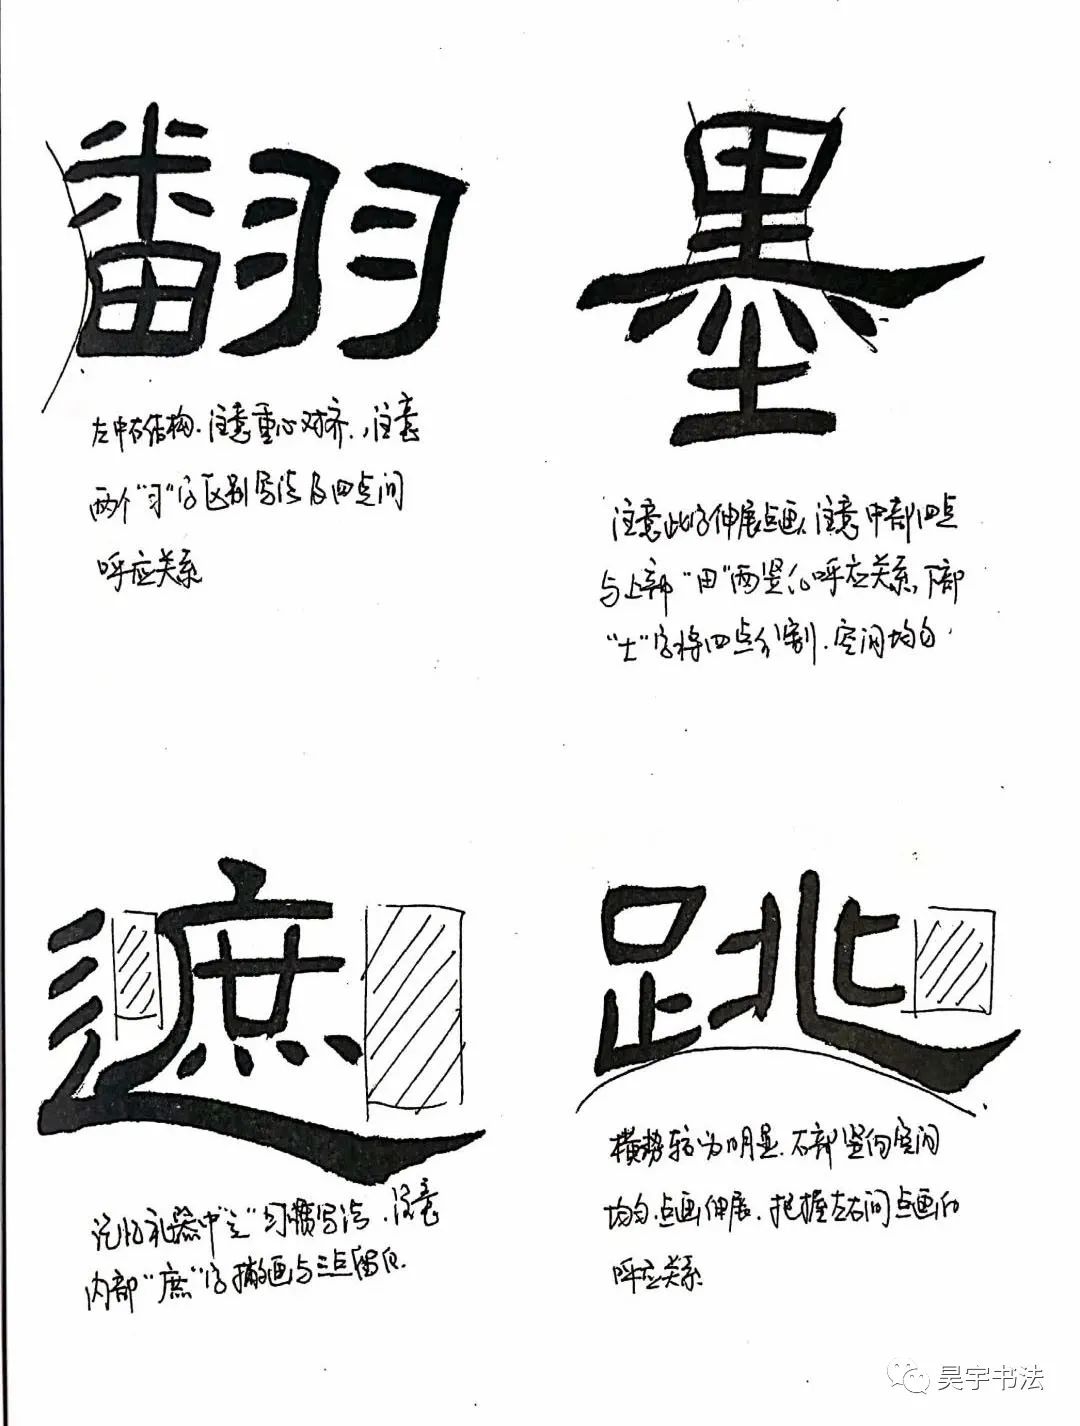 翻
左中右结构.注意重心对齐.,注意
两个"习"字区别写法及四点间
呼应关系
墨
注意此字伸展点画.注意中部四点
与上部"田"两竖的呼应关系,下部
"土"字将四点分割.空间均匀.
遮
记忆礼器中"辶"习惯写法.注意
内部"庶"字撇画与三点留白.
跳
横势较为明显.右部竖向空间
均匀.点画伸展.把握左右间点画的
呼应关系
昊宇书法